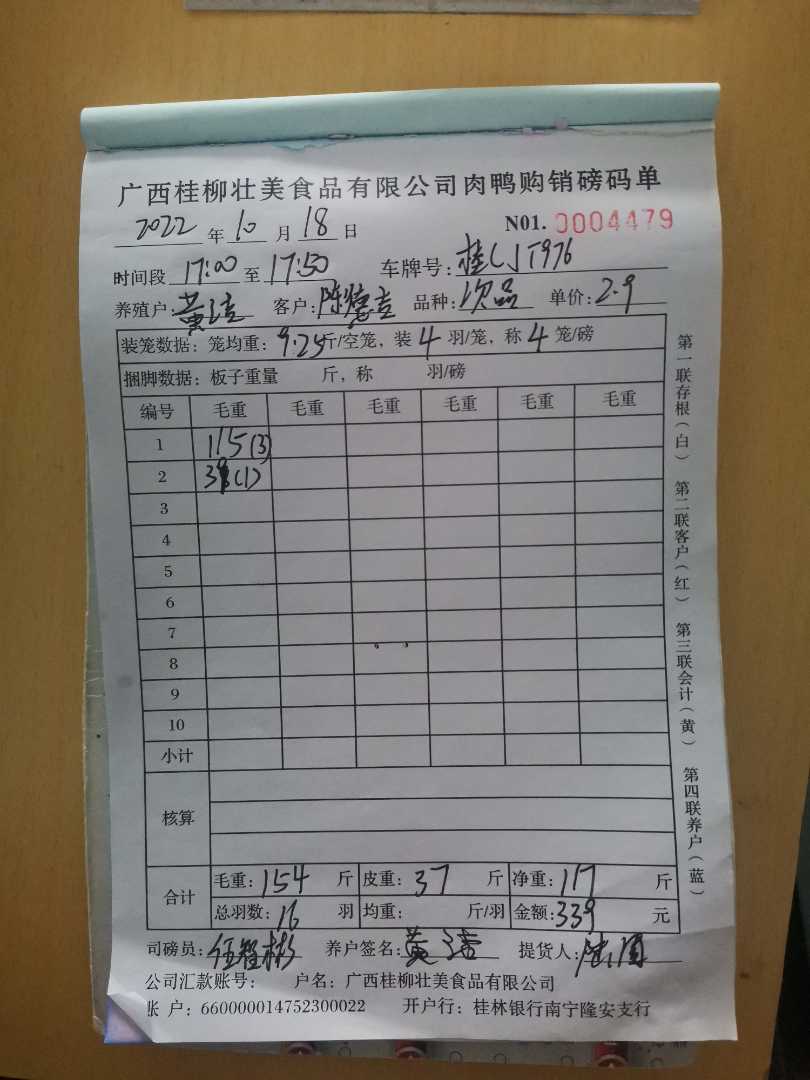 广西桂柳壮美食品有限公司肉鸭购销磅码单
2022 年 10 月 18 日 N01. 0004479
时间段 17:00 至 17:50 车牌号: 桂CJT976
养殖户: 黄洁 客户: 陈德吉 品种: 次品 单价: 2.9
装笼数据: 笼均重: 9.25斤/空笼, 装 4 羽/笼, 称 4 笼/磅
捆脚数据: 板子重量 斤, 称 羽/磅
编号 毛重 毛重 毛重 毛重 毛重 毛重
1 115(3)
2 39(1)
3
4
5
6
7
8
9
10
小计
核算
合计 毛重: 154 斤 皮重: 37 斤 净重: 117 斤
总羽数: 16 羽 均重: 斤/羽 金额: 339 元
司磅员: 养户签名: 黄洁 提货人:
公司汇款账号: 户名: 广西桂柳壮美食品有限公司
账 户: 660000014752300022 开户行: 桂林银行南宁隆安支行
第一联存根(白) 第二联客户(红) 第三联会计(黄) 第四联养户(蓝)